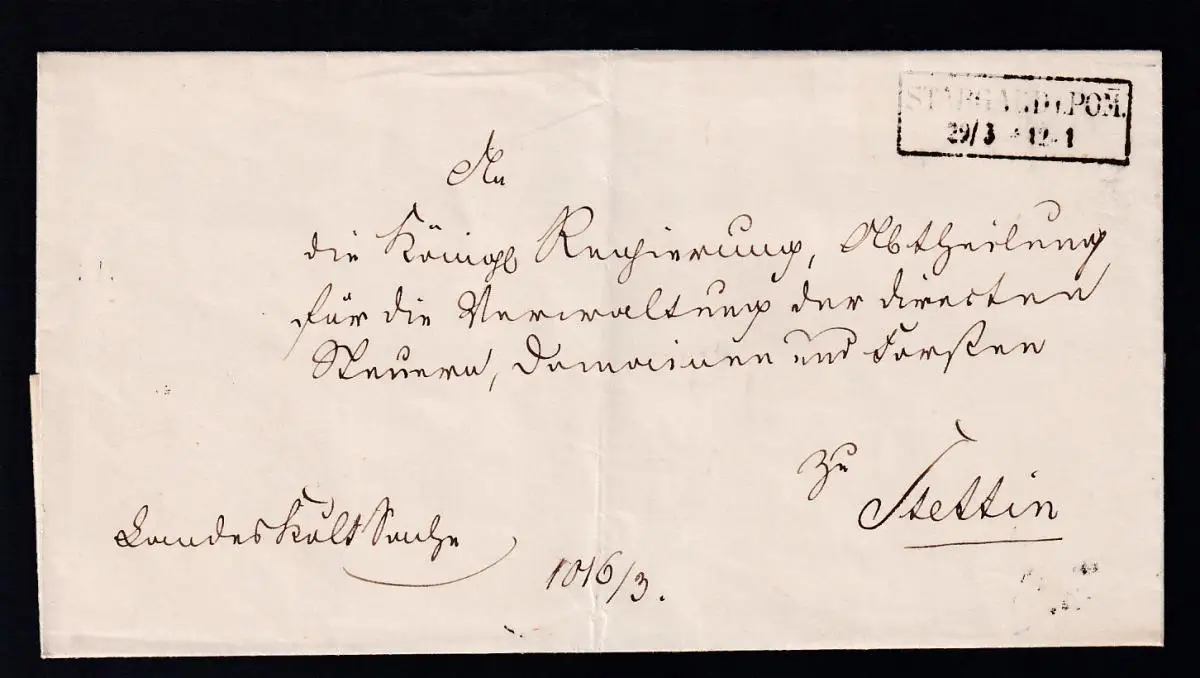 STARGARD i. POM̅.
29/3 * 12-1
An
die Königl Regierung, Abtheilung
für die Verwaltung der directen
Steuern, Domainen und Forsten
zu
Stettin
Landes Kult Sache
1016/3.